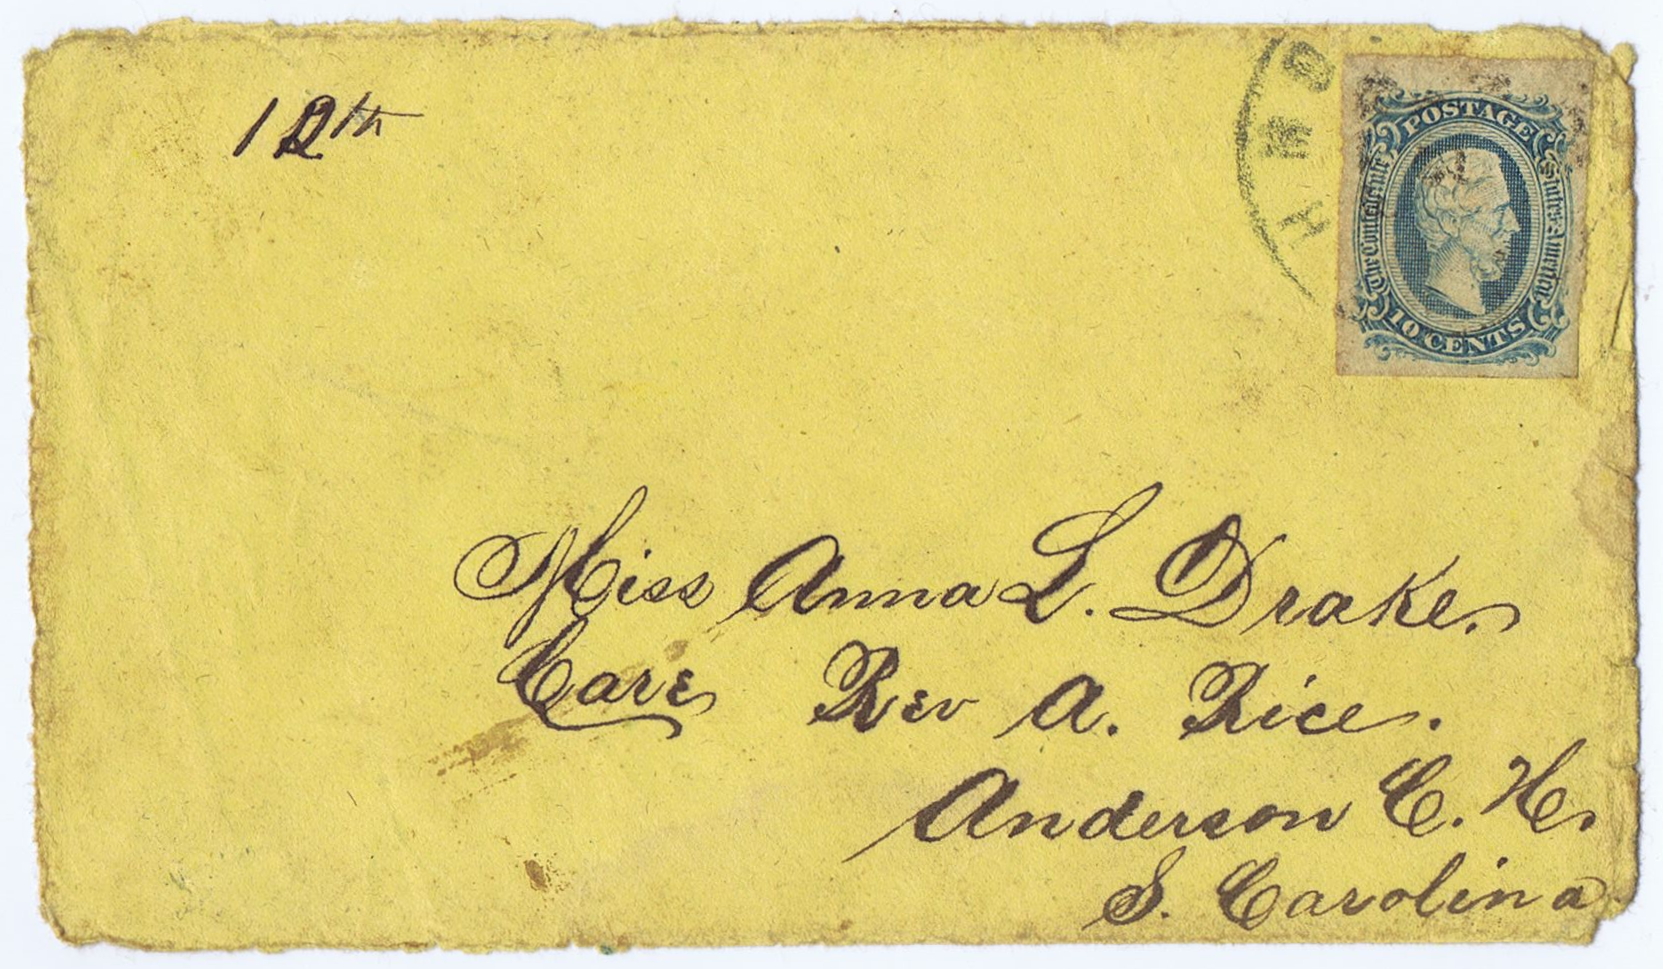 12th
POSTAGE
The Confederate States America
10 CENTS
Miss Anna L. Drake.
Care Rev A. Rice.
Anderson C. H.
S. Carolina